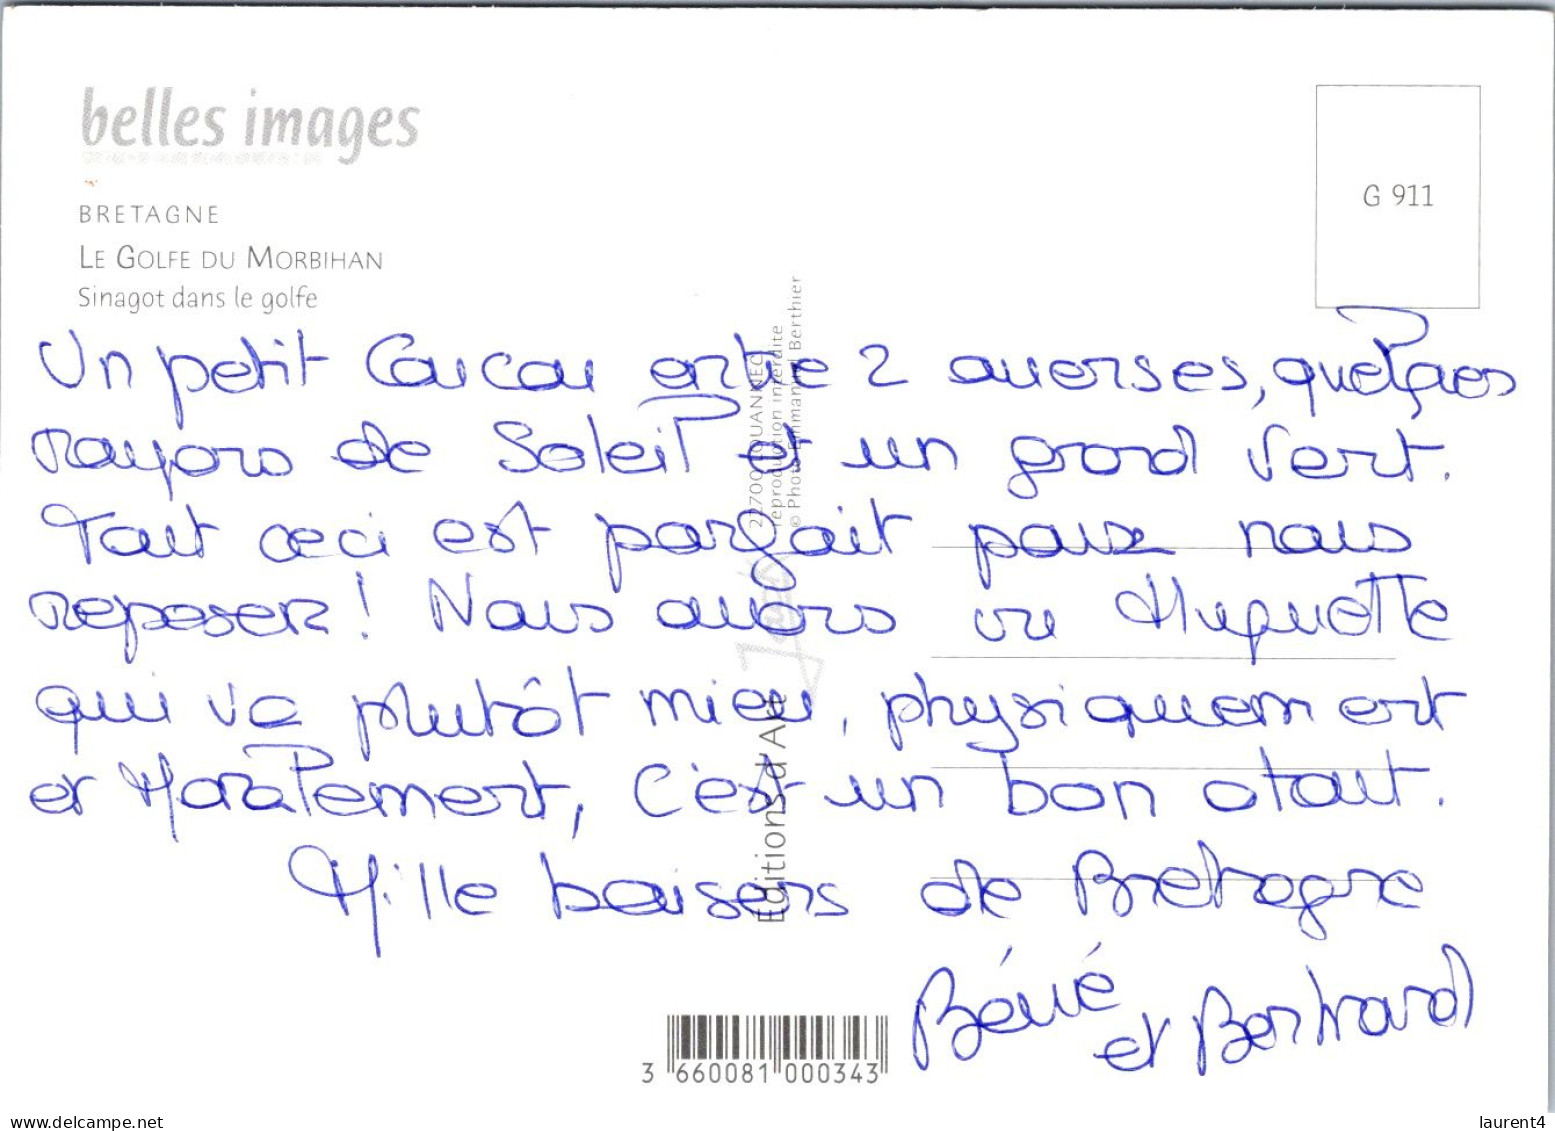 belles images
BRETAGNE
LE GOLFE DU MORBIHAN
Sinagot dans le golfe
G 911
Un petit Coucou entre 2 averses, quelques
rayons de Soleil et un grand Vent.
Tout ceci est parfait pour nous
reposer! Nous avons vu Huguette
qui va plutôt mieu, physiquement
et Moralement, C'est un bon atout.
Mille baisers de Bretagne
et Bertrand
Editions d'Art
Jack
22700 LOUANNEC
reproduction interdite
© Photo Emmanuel Berthier
3 660081 000343
laurent4